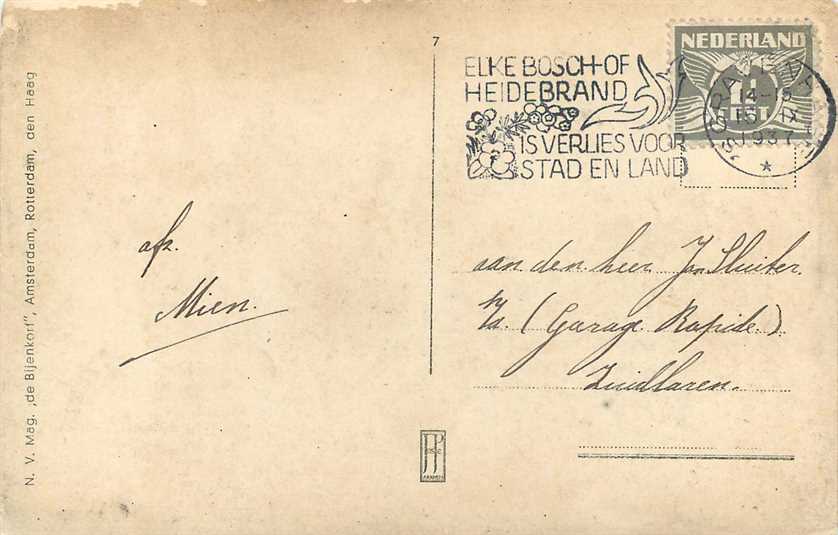 N. V. Mag. „de Bijenkorf", Amsterdam, Rotterdam, den Haag
7
ELKE BOSCH-OF
HEIDEBRAND
IS VERLIES VOOR
STAD EN LAND
NEDERLAND
1½
CT
'S GRAVENHAGE
14-15
IX
1937
afz.
Mien.
aan den heer Jan Sluiter.
p/a. (Garage Rapide.)
Zuidlaren.